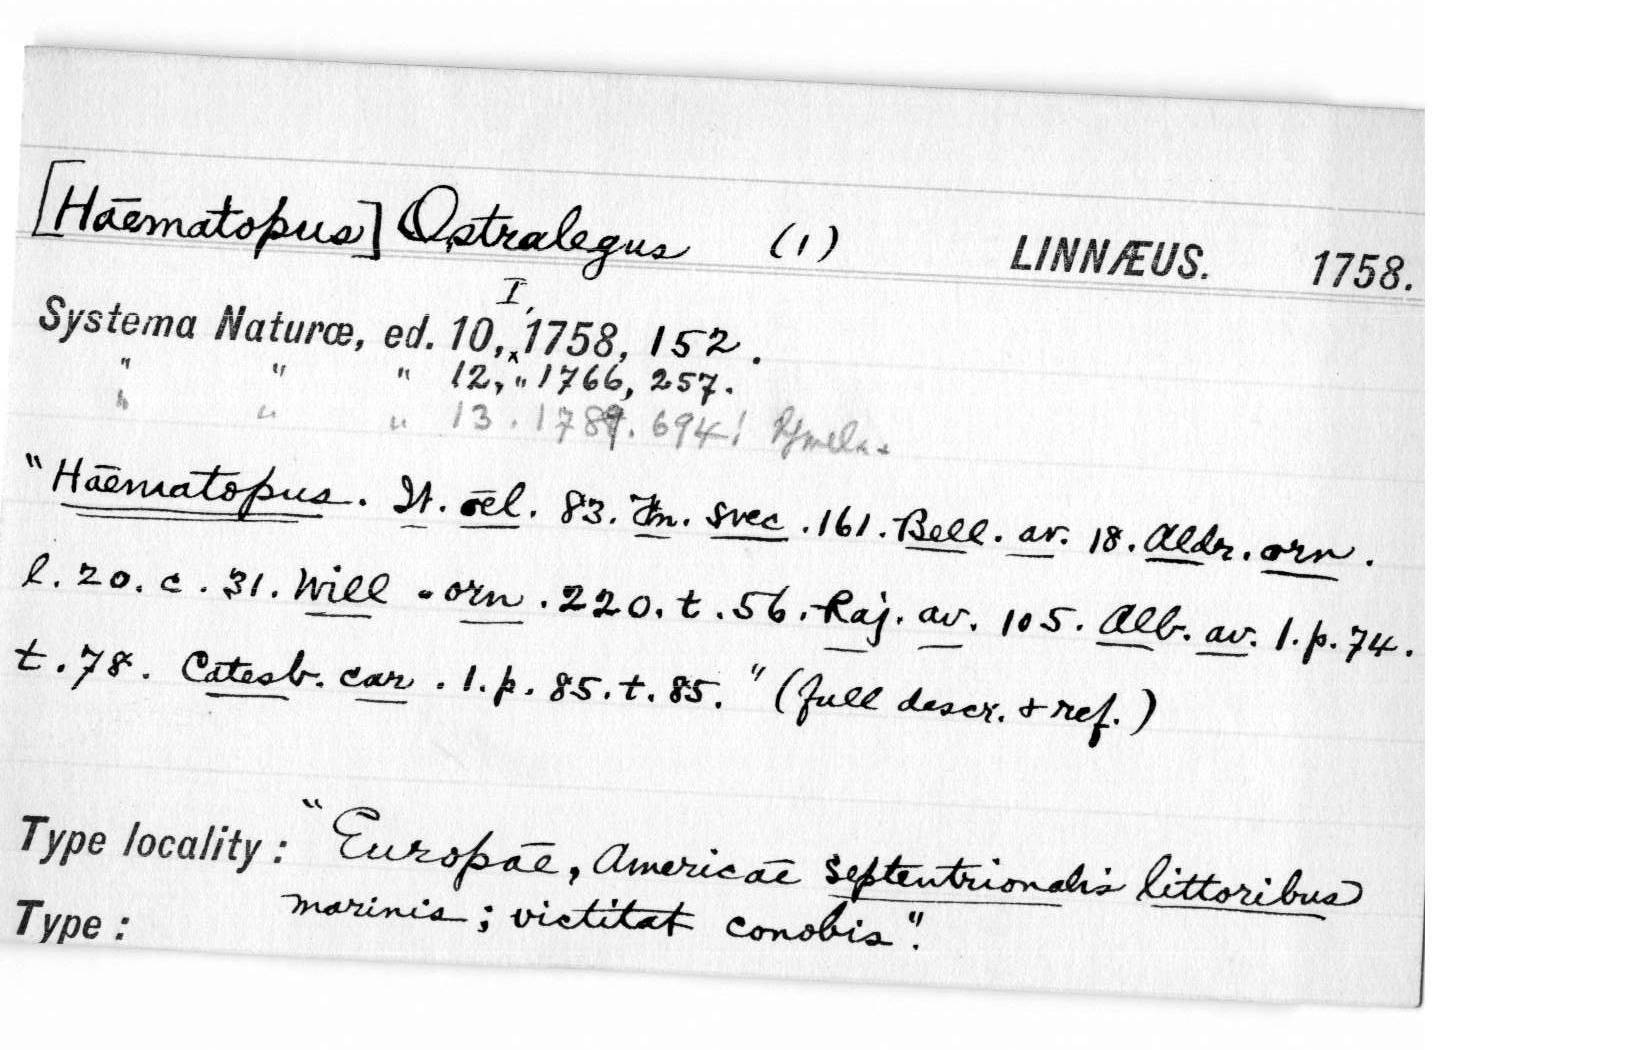 [Haēmatopus] Ostralegus (1) LINNÆUS. 1758.
I,
Systema Naturæ, ed. 10, ‸ 1758, 152.
" " " 12, " 1766, 257.
" " " 13. 1789. 694! Gmel.
"Haēmatopus. It. oēl. 83. Fn. svec. 161. Bell. av. 18. Aldr. orn.
l. 20. c. 31. Will. orn. 220. t. 56. Raj. av. 105. Alb. av. 1. p. 74.
t. 78. Catesb. car. 1. p. 85. t. 85." (full descr. + ref.)
Type locality: "Europaē, Americaē septentrionalis littoribus
marinis; victitat conobis".
Type: